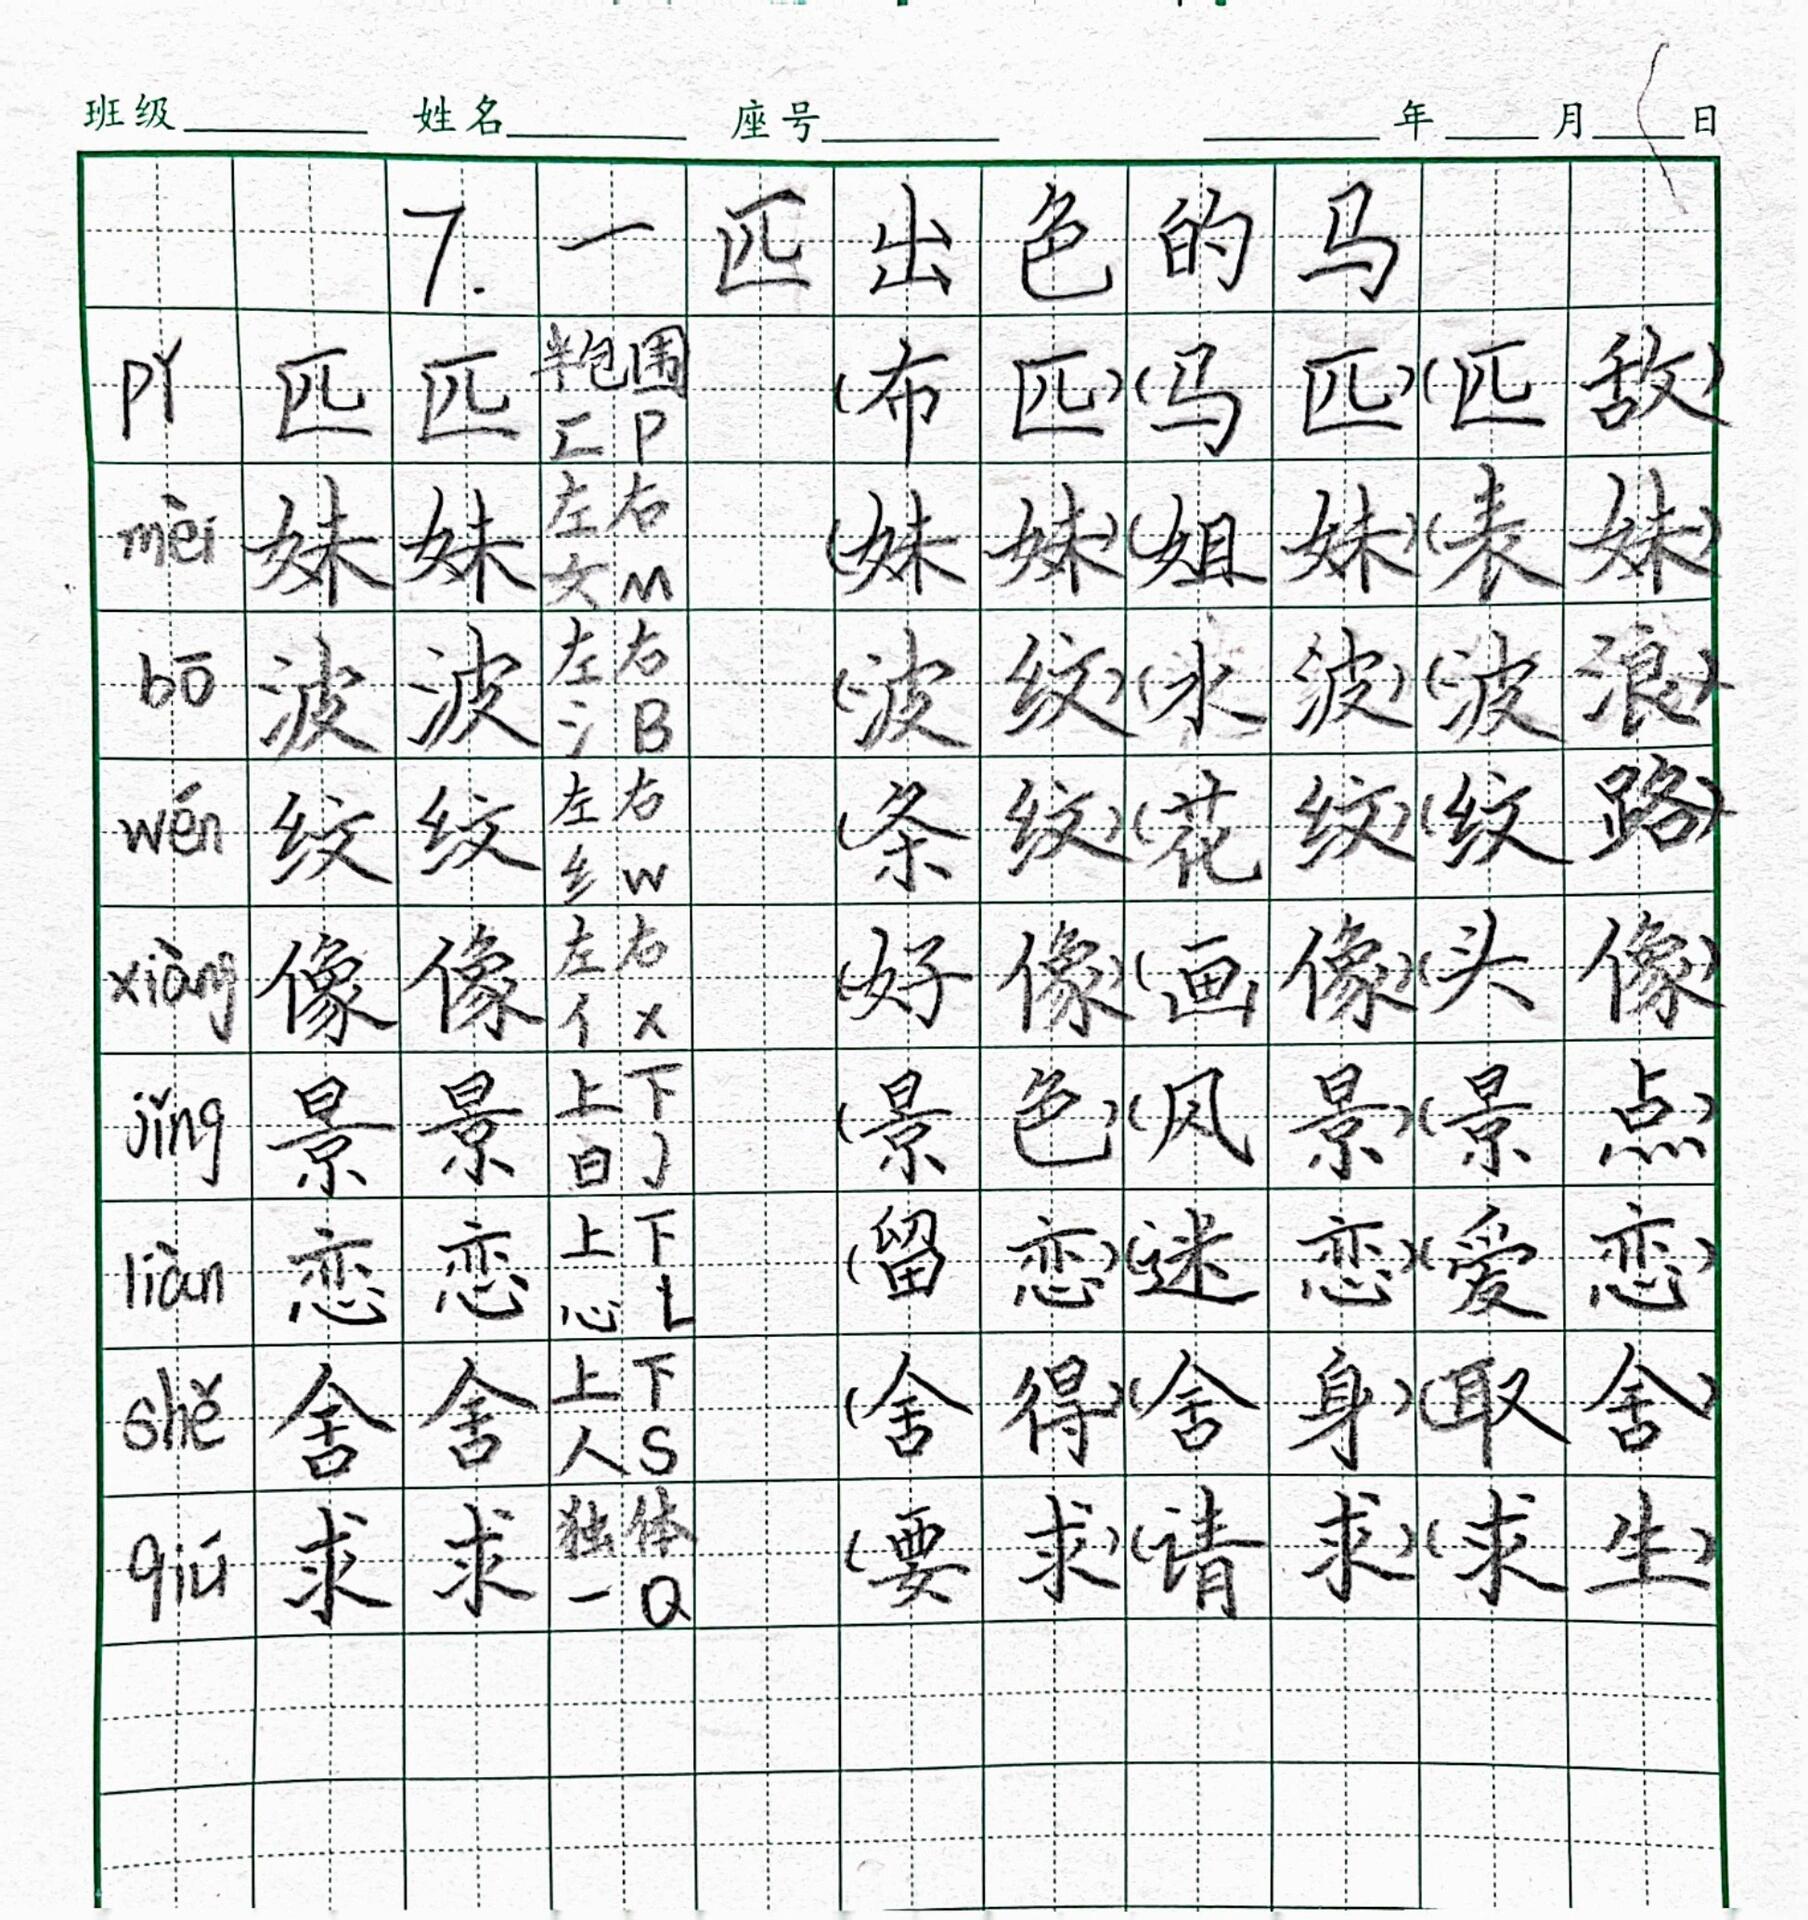 班级 姓名 座号 年 月 日
7. 一匹出色的马
pǐ 匹 匹 半包围 匚 P (布匹) (马匹) (匹敌)
mèi 妹 妹 左右 女 M (妹妹) (姐妹) (表妹)
bō 波 波 左右 氵 B (波纹) (水波) (波浪)
wén 纹 纹 左右 纟 W (条纹) (花纹) (纹路)
xiàng 像 像 左右 亻 X (好像) (画像) (头像)
jǐng 景 景 上下 日 J (景色) (风景) (景点)
liàn 恋 恋 上下 心 L (留恋) (迷恋) (爱恋)
shě 舍 舍 上下 人 S (舍得) (舍身) (取舍)
qiú 求 求 独体 一 Q (要求) (请求) (求生)